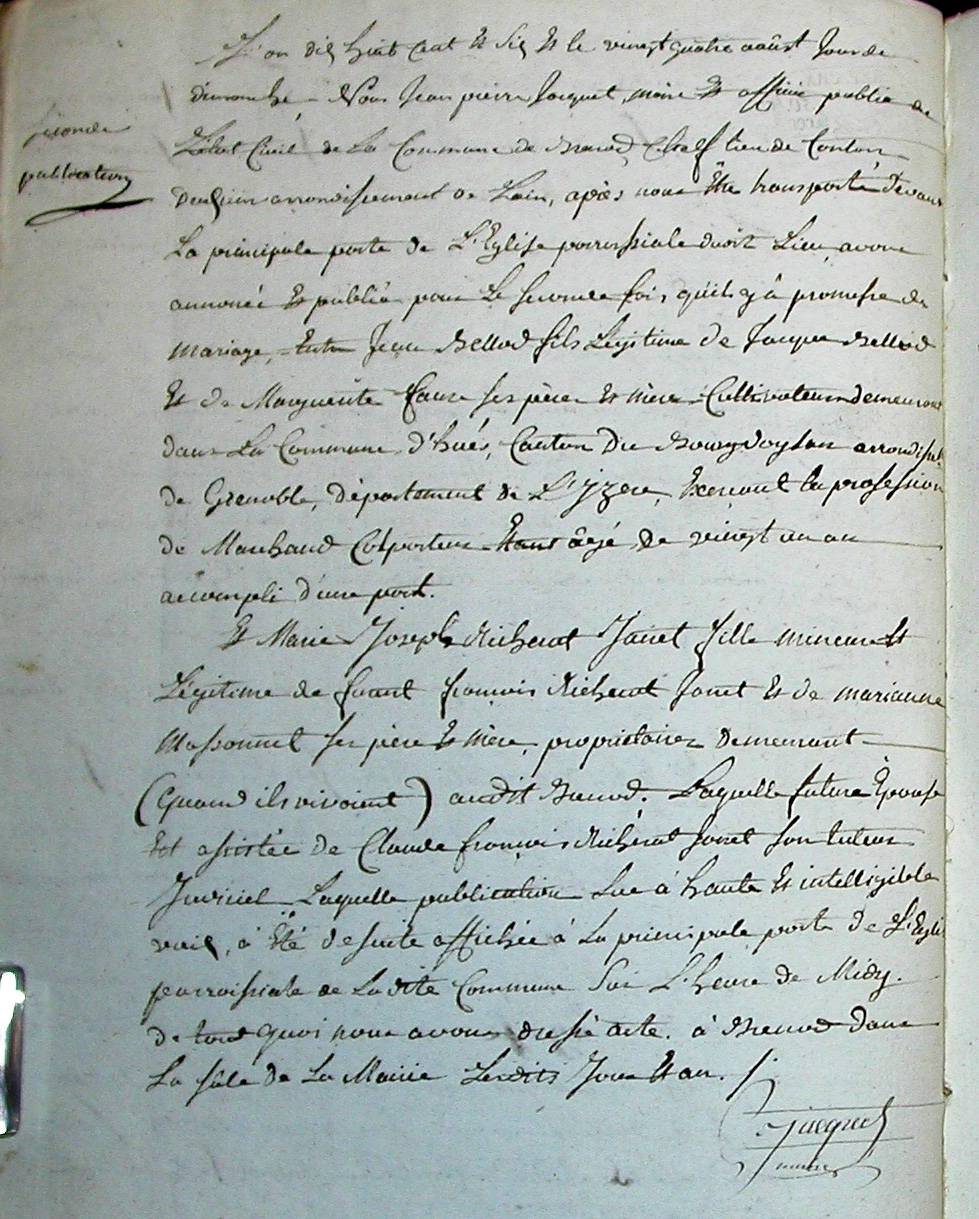 seconde
publication
L'an dix huit cent et six et le vingt quatre août Jour de
dimanche Nous Jean pierre Jacquet, maire et officier public de
L'état Civil de La Commune de Brenod, Cheff lieu de Canton
deuxième arrondissement de Lain, après nous être transporté devant
La principale porte de L'Eglise parroissiale dudit Lieu, avons
annoncé et publié pour La seconde fois qu'il y à promesse de
mariage, Entre Jean Bellod fils Légitime de Jacques Bellod
Et de Marguerite faure ses père et mère Cultivateurs demeurant
dans La Commune d'huès, Canton Du Bourg doysan arrondisst
de Grenoble, département de L'Yzere, Exercant la profession
de Marchand Colporteur Etant âgé de vingt un an
accompli d'une part.
Et Marie Joseph Richerat Janet fille mineure et
Légitime de feu françois Richerat Janet et de marianne
Massonnet ses père et mère, propriétaires Demeurant
(quand ils vivoient) audit Brenod. Laquelle future Epouse
Est assistée de Claude françois Richerat Janet son tuteur
Laquelle publication Lue à haute et intelligible
voix, à été desuite affichée à La principale porte de L'Eglise
parroissiale de Ladite Commune Sur L'heure de Midy.
de tout quoi nous avons dressé acte. à Brenod dans
La sâle de La Mairie Lesdits Jour et an.
Jacquet
maire